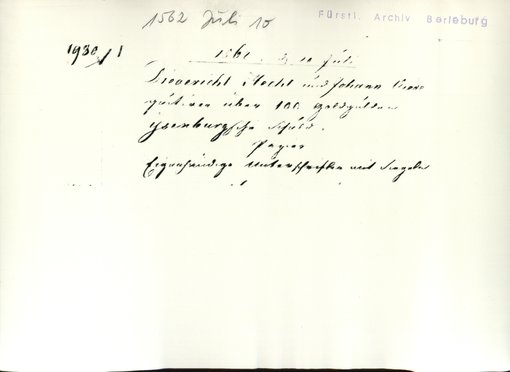 1562 Juli 10
Fürstl. Archiv Berleburg
1930/1
1561 10 Juli
und Johann
quittiren über 100 Goldgulden
Isenburgsche Schuld.
Papier
Eigenhändige Unterschriften mit Siegeln